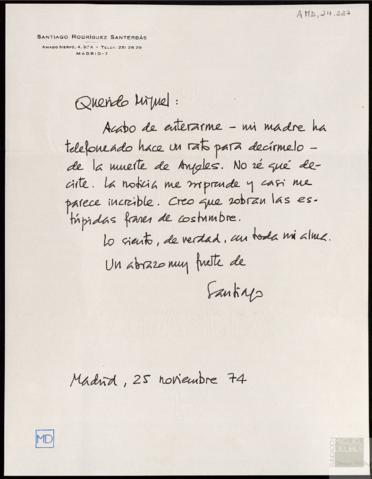 AMD, 24.227
SANTIAGO RODRÍGUEZ SANTERBÁS
MADRID-7
Querido Miguel:
Acabo de enterarme – mi madre ha
telefoneado hace un rato para decírmelo –
de la muerte de Angeles. No sé qué de-
cirte. La noticia me sorprende y casi me
parece increíble. Creo que sobran las es-
túpidas frases de costumbre.
Lo siento, de verdad, con toda mi alma.
Un abrazo muy fuerte de
Santiago
Madrid, 25 noviembre 74
MD